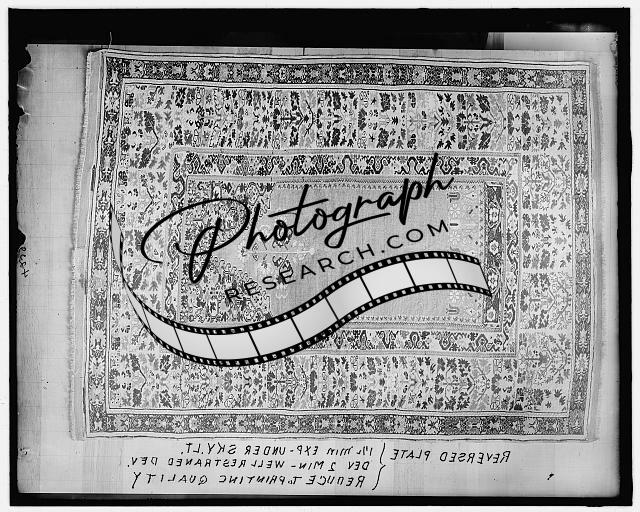 Photograph
RESEARCH.COM
REVERSED PLATE
MIN EXP - UNDER SKY.LT.
DEV 2 MIN - WELL RESTRANED DEV.
REDUCE TO PRINTING QUALITY